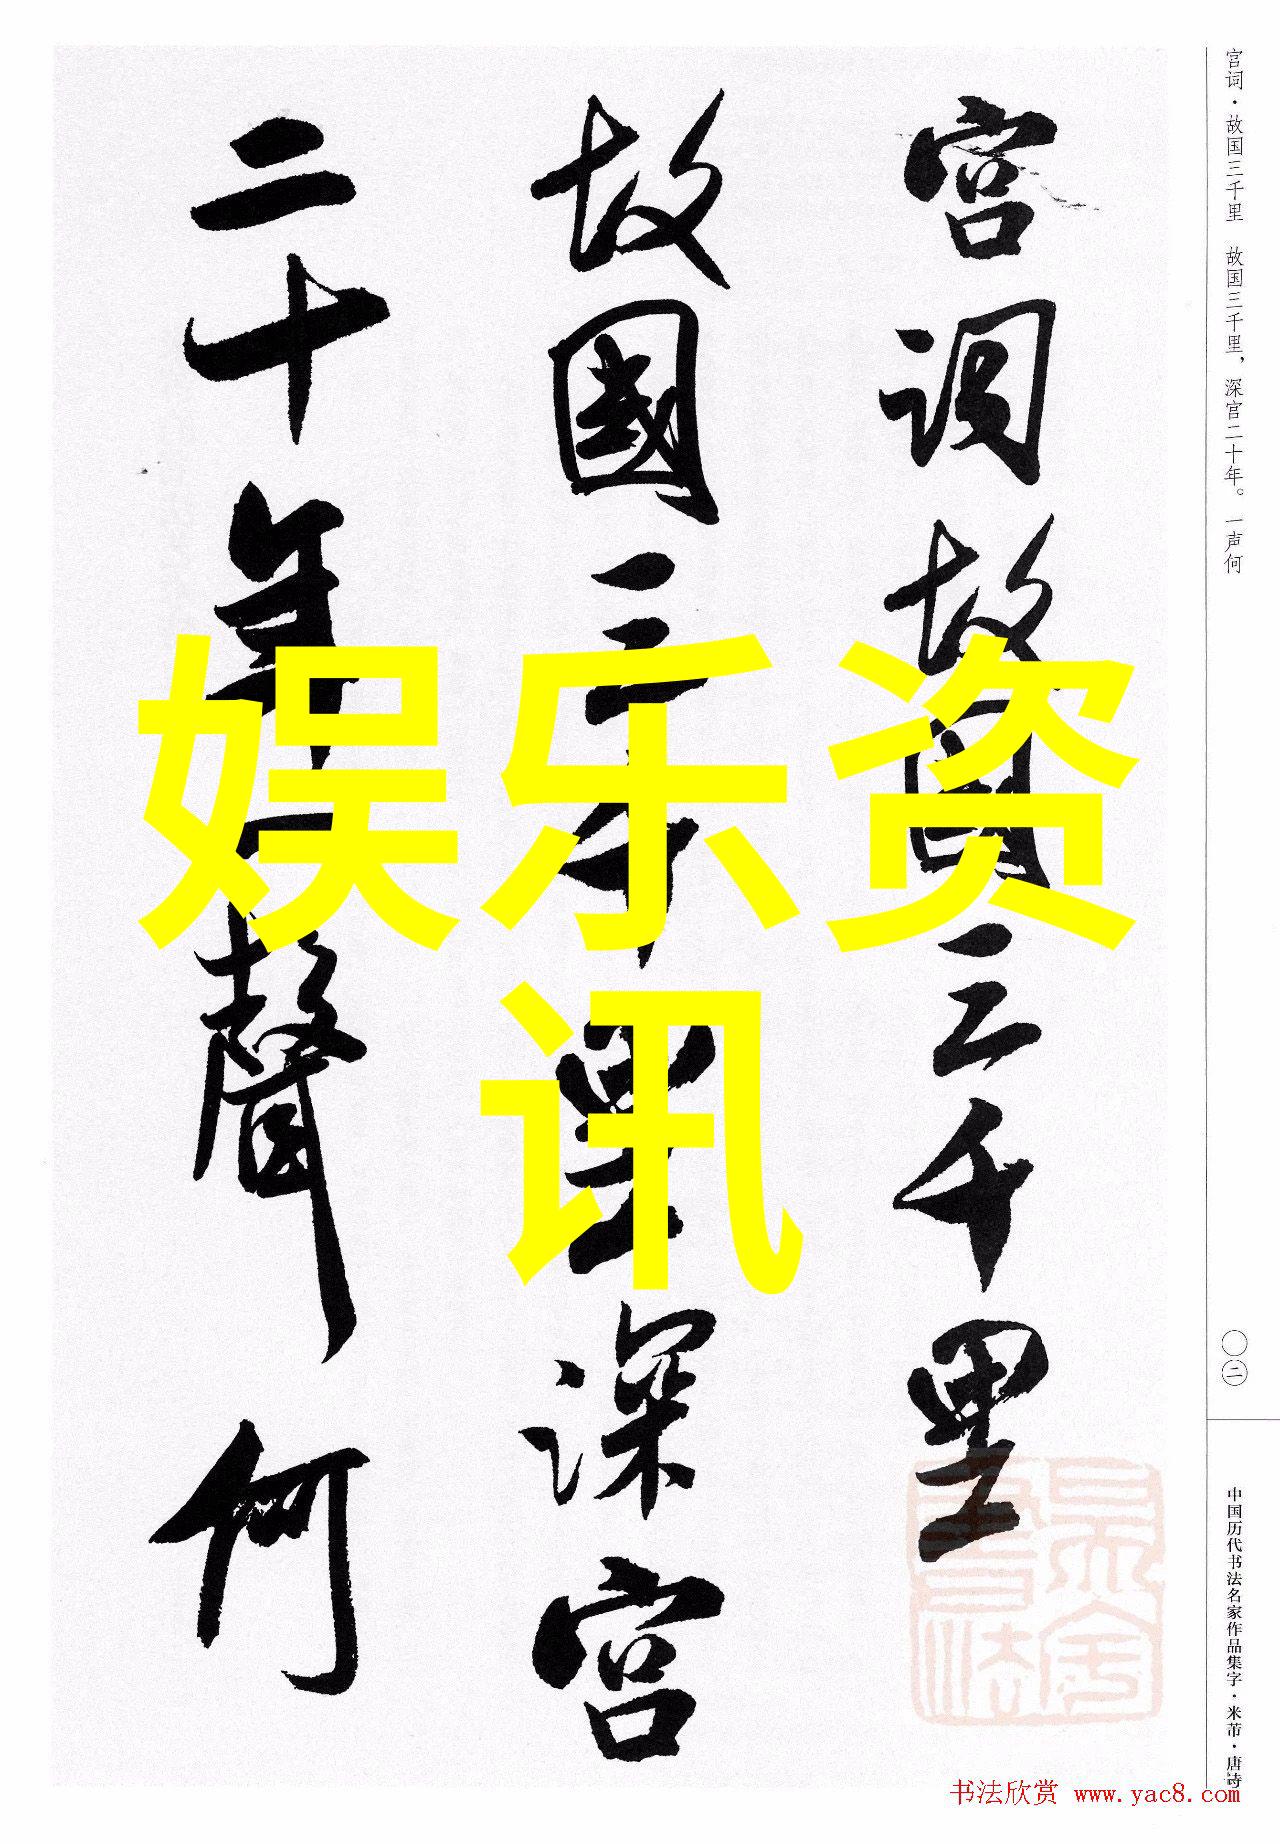 宫词·故国三千里 故国三千里，深宫二十年。一声何
宫词故国三千里
故國三千里深宫
二十年一聲何
娱乐资
讯
〇二
中国历代书法名家作品集字·米芾·唐诗
书法欣赏 www.yac8.com